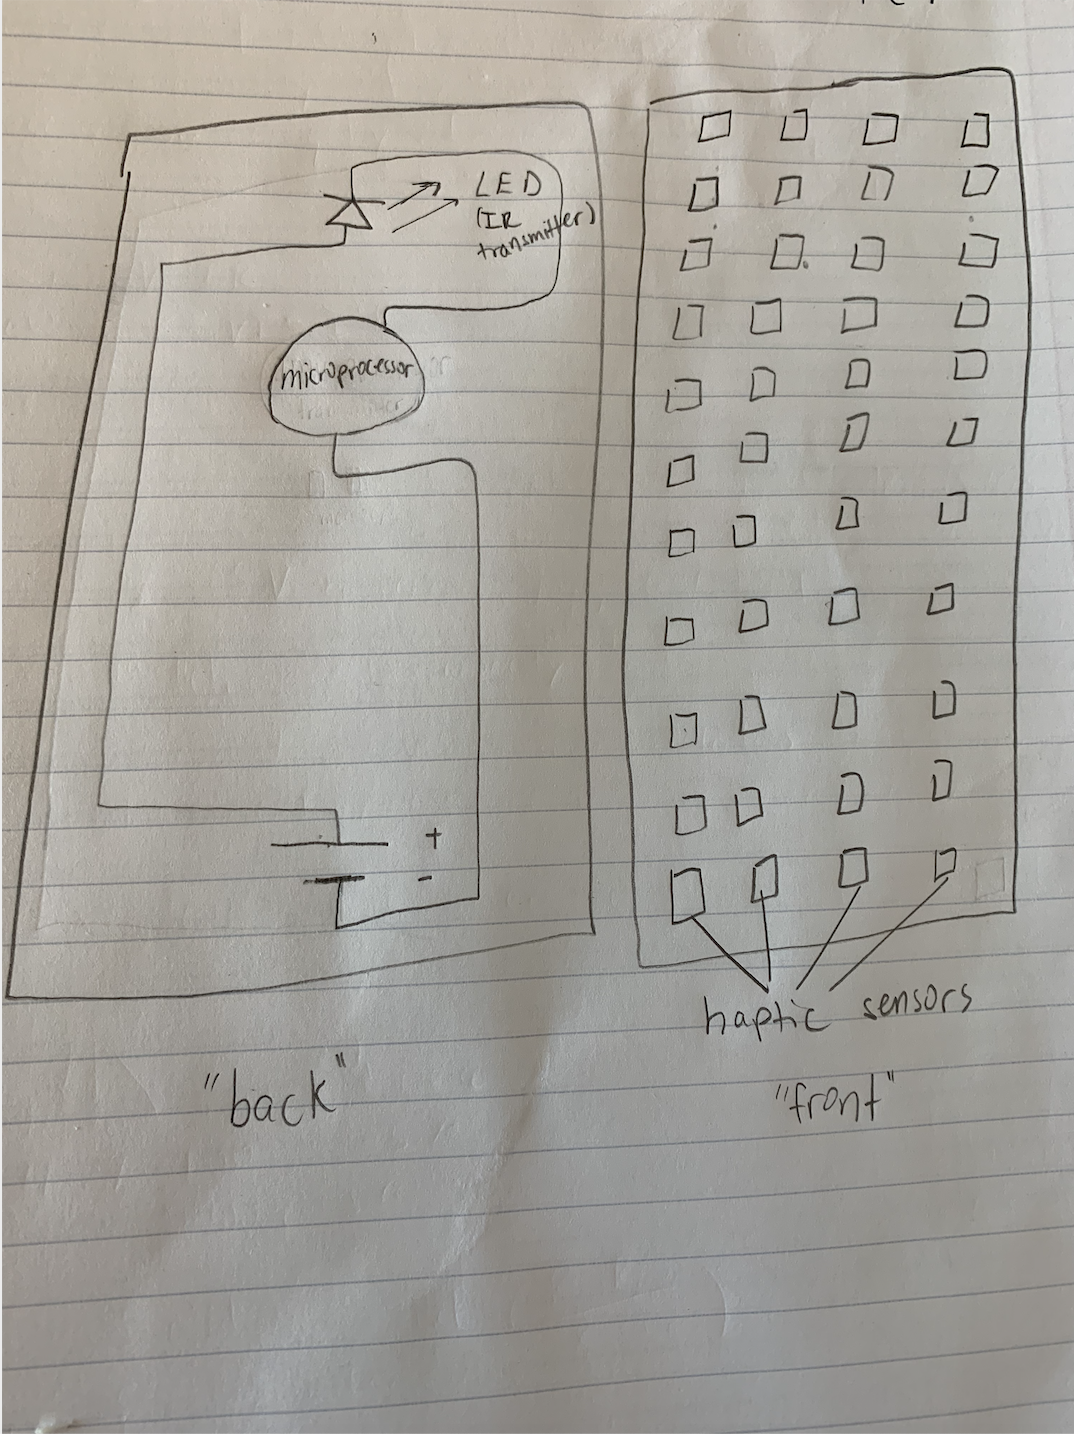 LED
(IR
transmitter)
microprocessor
+
-
"back"
haptic sensors
"front"